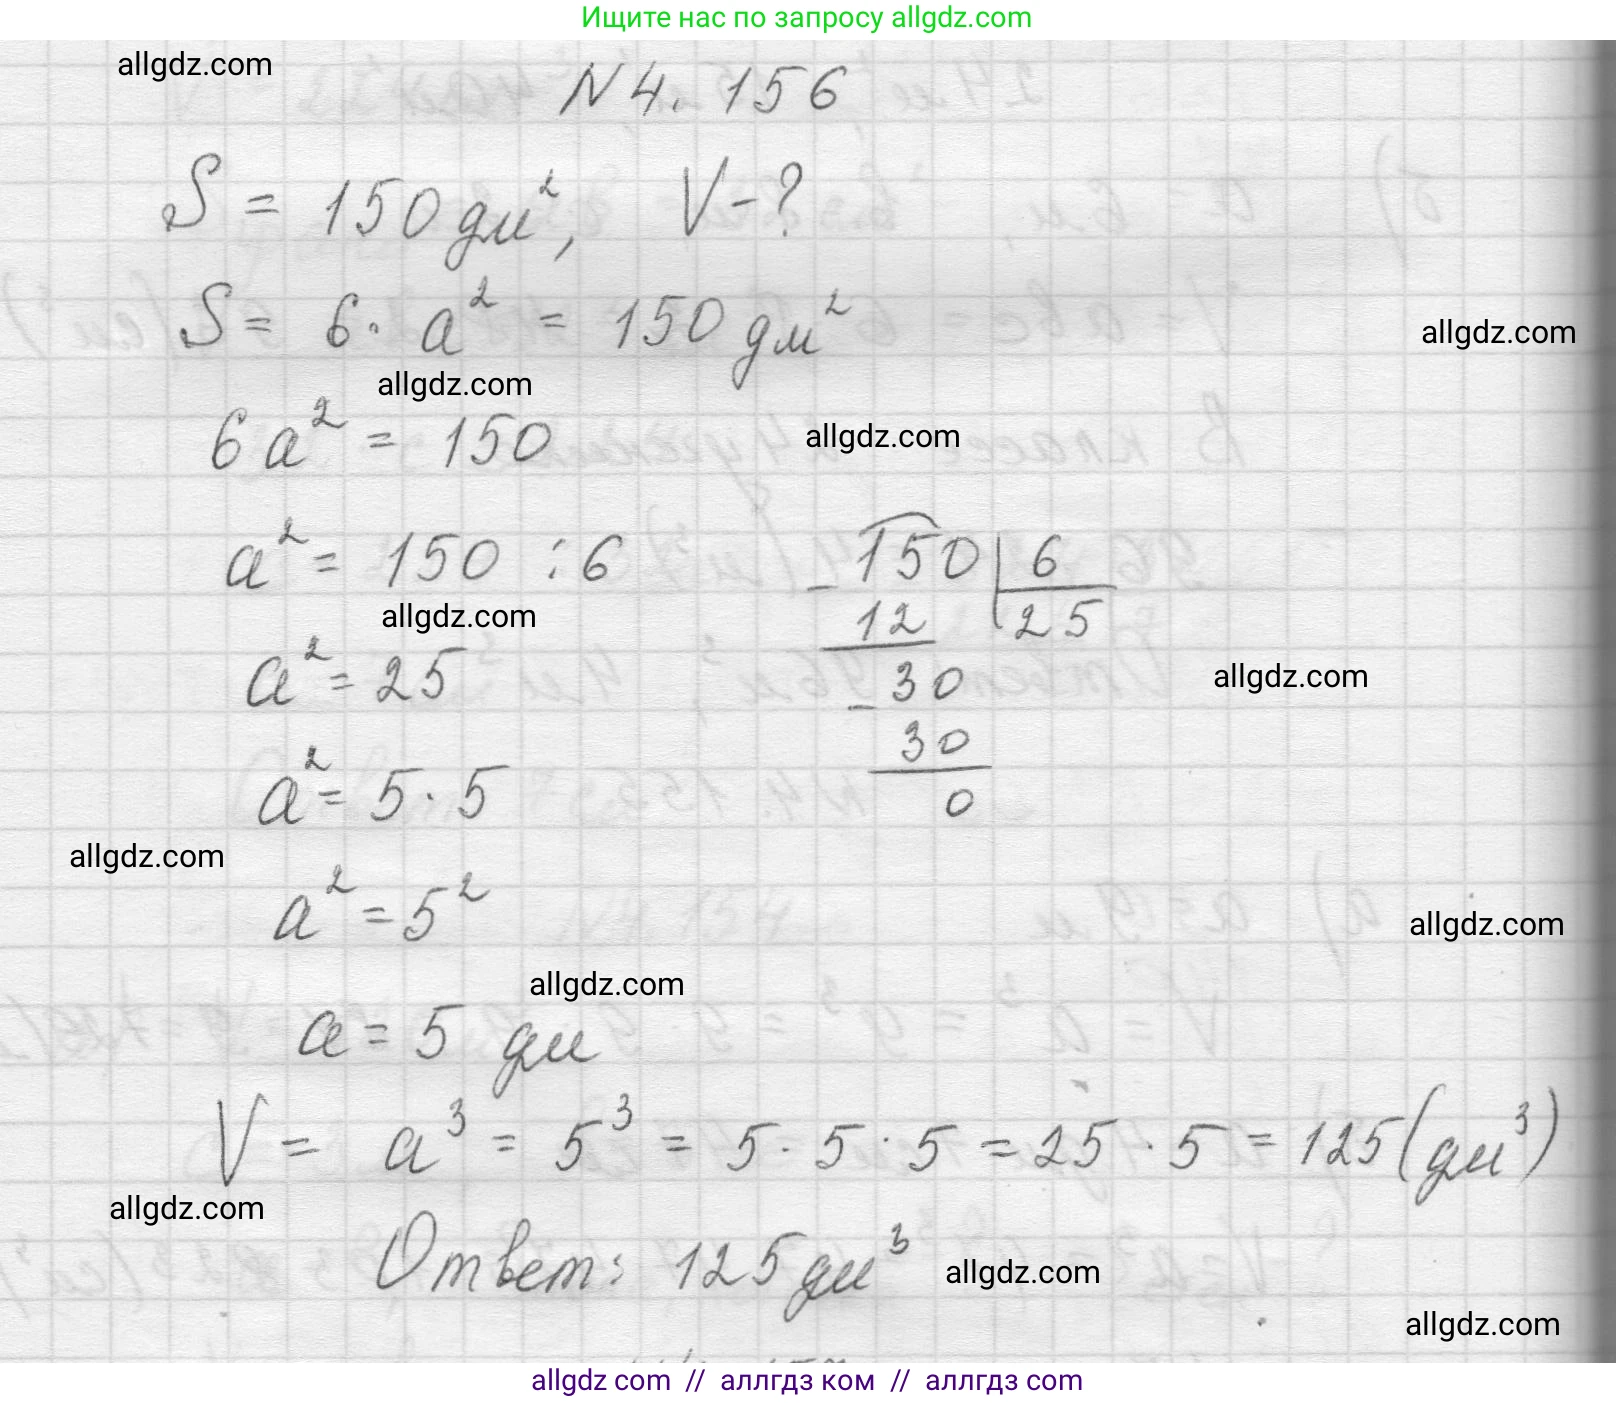 Ищите нас по запросу allgdz.com
allgdz.com
N 4. 156
S = 150 дм², V - ?
S = 6 · a² = 150 дм²
allgdz.com
allgdz.com
6a² = 150
allgdz.com
a² = 150 : 6
150 | 6
- 12 25
allgdz.com
a² = 25
30
allgdz.com
- 30
a² = 5 · 5
0
allgdz.com
a² = 5²
allgdz.com
allgdz.com
a = 5 дм
V = a³ = 5³ = 5 · 5 · 5 = 25 · 5 = 125 (дм³)
allgdz.com
Ответ: 125 дм³
allgdz.com
allgdz.com
allgdz com // аллгдз ком // аллгдз com